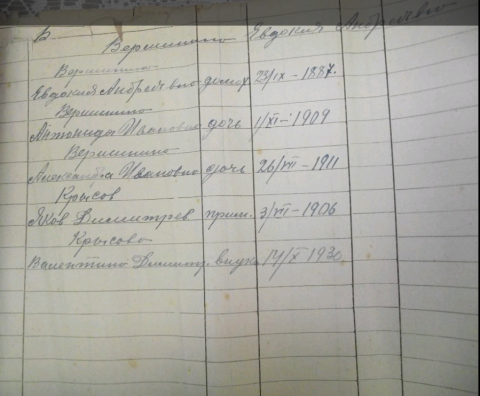 Б
Вершинина Евдокия Андреевна
Вершинина
Евдокия Андреевна домох. 23/IX - 1887.
Вершинина
Антонида Ивановна дочь 1/XI - 1909
Вершинина
Александра Ивановна дочь 26/VII - 1911
Крысов
Яков Димитрев прим. 3/VII - 1906
Крысова
Валентина Димитр. внука 14/X 1930